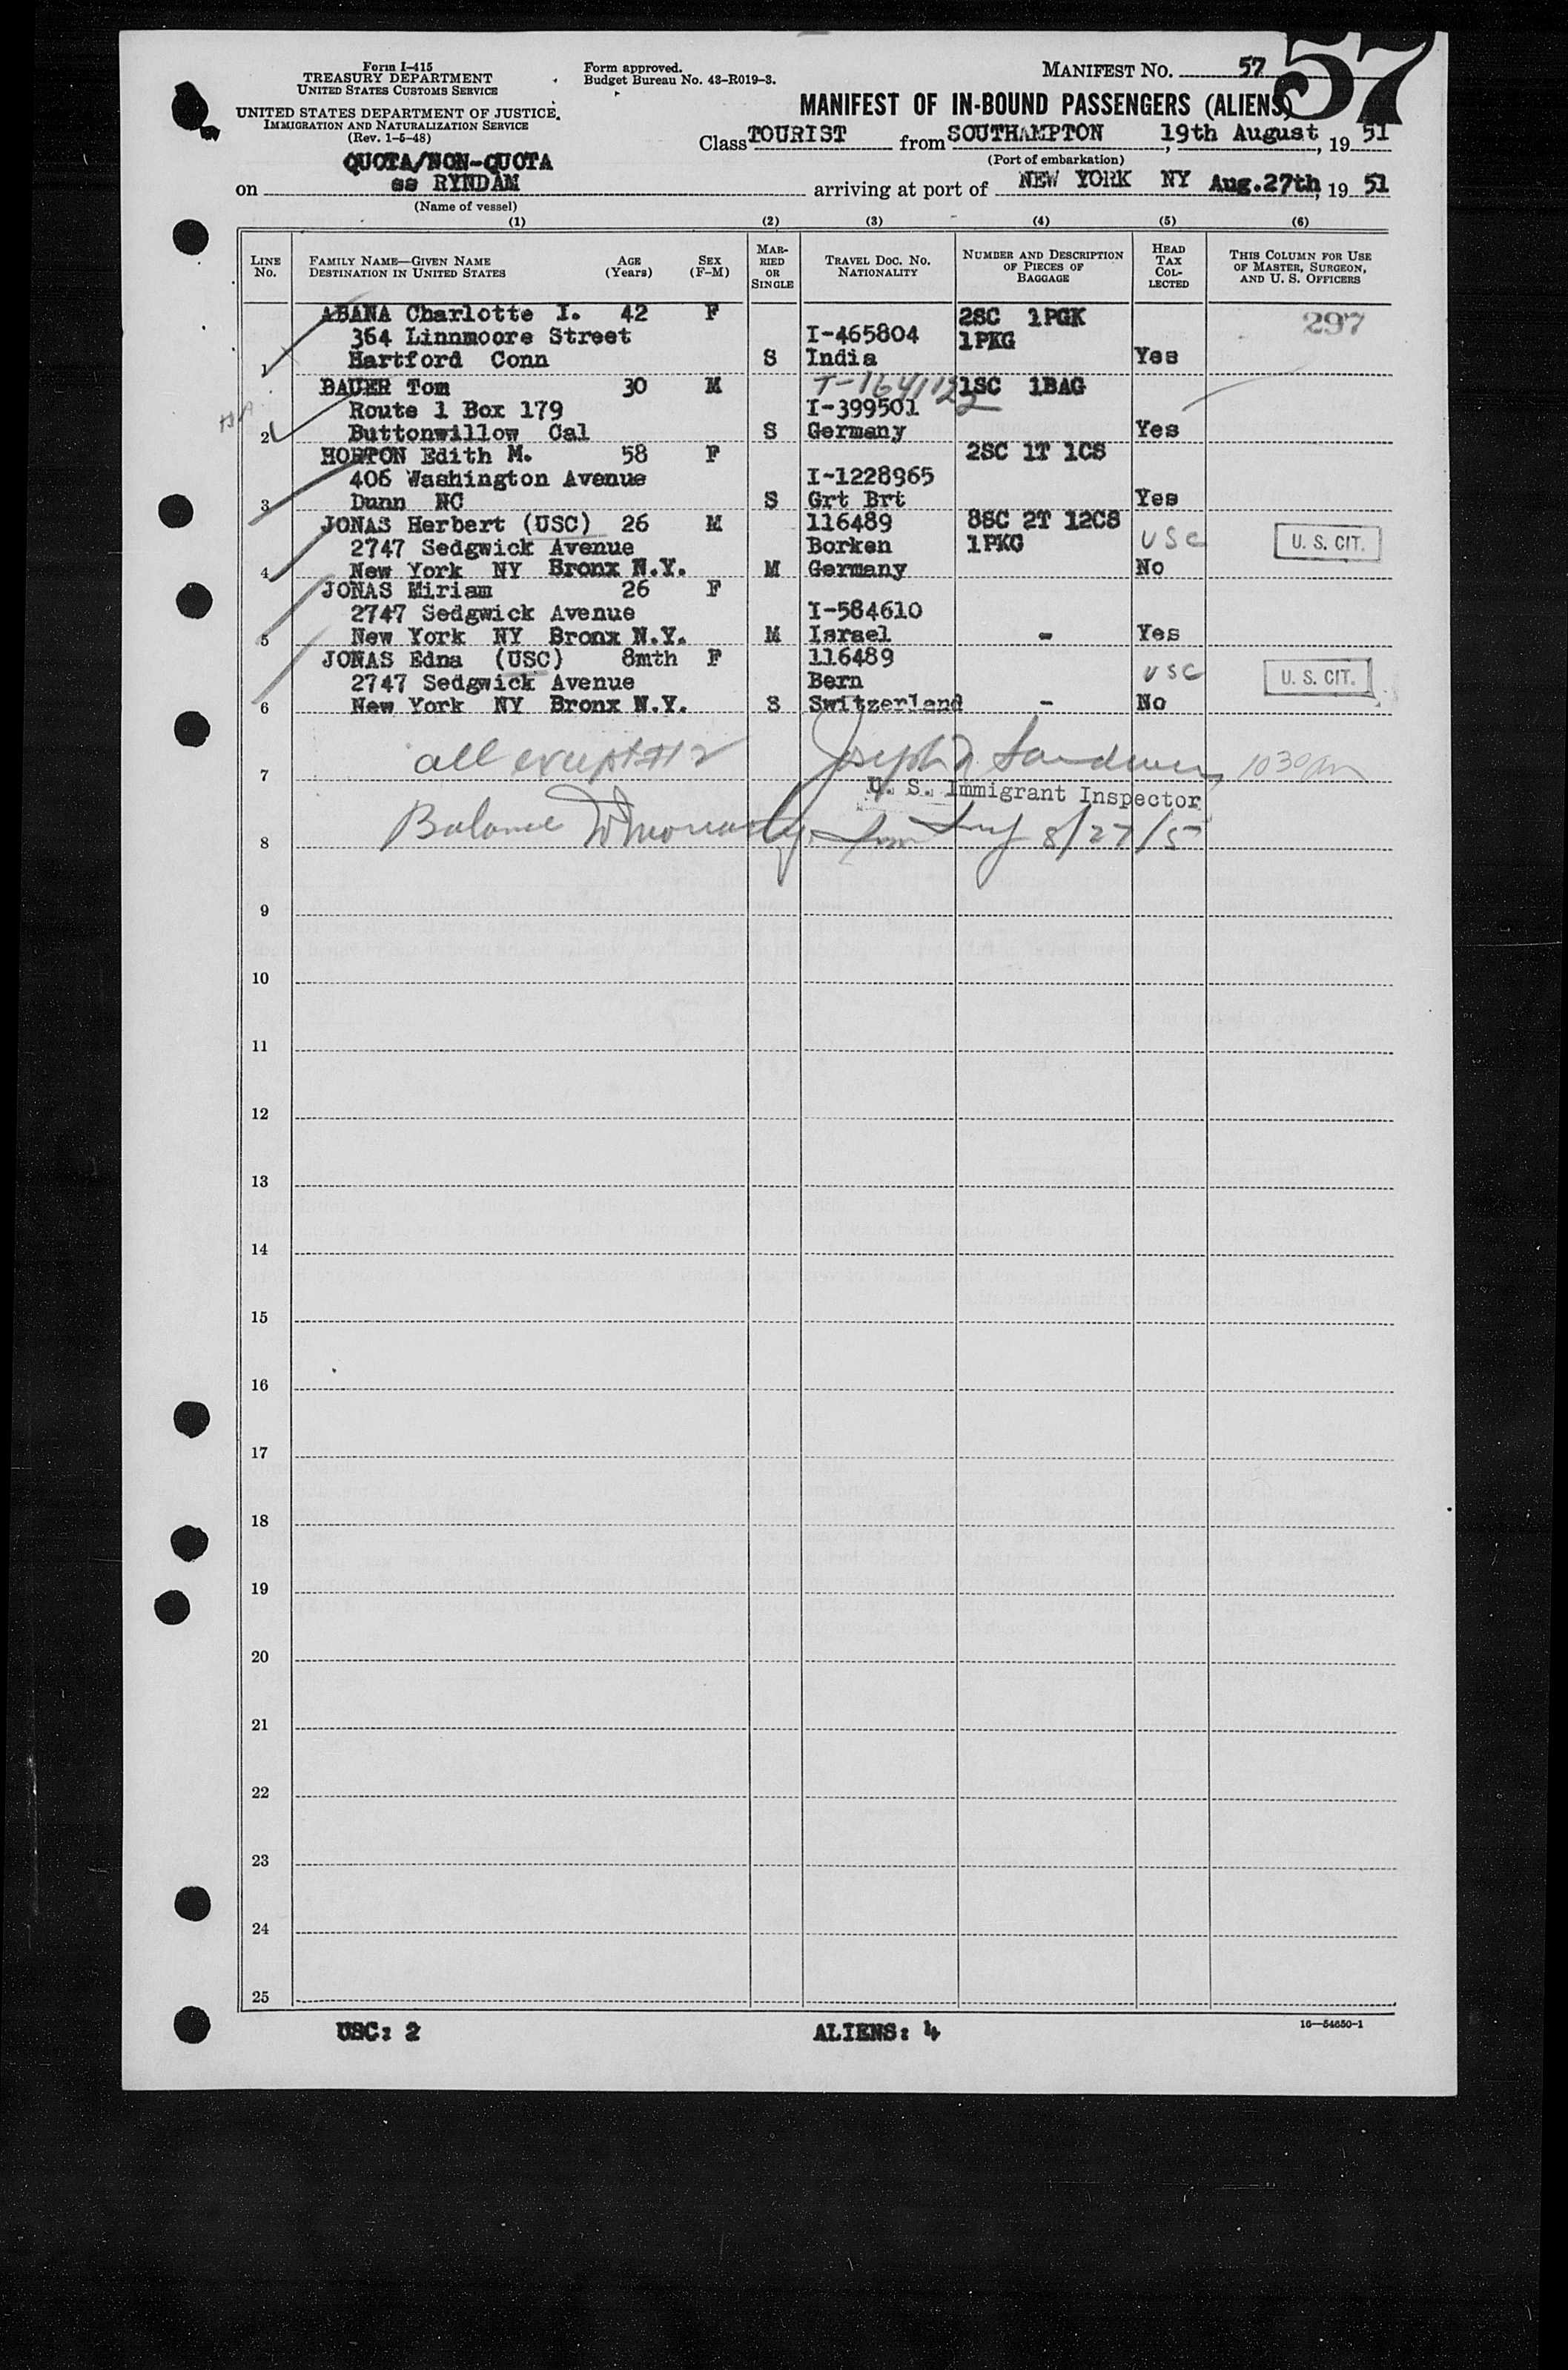 Form I-415
TREASURY DEPARTMENT
UNITED STATES CUSTOMS SERVICE
UNITED STATES DEPARTMENT OF JUSTICE
IMMIGRATION AND NATURALIZATION SERVICE
(Rev. 1-5-48)
Form approved.
Budget Bureau No. 43-R019-3.
MANIFEST NO. 57
57
MANIFEST OF IN-BOUND PASSENGERS (ALIENS)
Class TOURIST from SOUTHAMPTON, 19th August, 1951
(Port of embarkation)
QUOTA/NON-QUOTA
on ss RYNDAM arriving at port of NEW YORK NY Aug.27th, 1951
(Name of vessel)
(1) (2) (3) (4) (5) (6)
LINE No.
FAMILY NAME—GIVEN NAME
DESTINATION IN UNITED STATES
AGE (Years)
SEX (F-M)
MARRIED OR SINGLE
TRAVEL DOC. NO.
NATIONALITY
NUMBER AND DESCRIPTION OF PIECES OF BAGGAGE
HEAD TAX COLLECTED
THIS COLUMN FOR USE OF MASTER, SURGEON, AND U. S. OFFICERS
ABANA Charlotte I. 42 F 2SC 1PGK 297
364 Linnmoore Street I-465804 1PKG
1 Hartford Conn S India Yes
BAUER Tom 30 M T-1641122 1SC 1BAG
Route 1 Box 179 I-399501
2 Buttonwillow Cal S Germany Yes
HORTON Edith M. 58 F 2SC 1T 1CS
406 Washington Avenue I-1228965
3 Dunn NC S Grt Brt Yes
JONAS Herbert (USC) 26 M 116489 8SC 2T 12CS
2747 Sedgwick Avenue Borken 1PKG USC U. S. CIT.
4 New York NY Bronx N.Y. M Germany No
JONAS Miriam 26 F
2747 Sedgwick Avenue I-584610
5 New York NY Bronx N.Y. M Israel - Yes
JONAS Edna (USC) 8mth F 116489
2747 Sedgwick Avenue Bern USC U. S. CIT.
6 New York NY Bronx N.Y. S Switzerland - No
7 all except #2 Joseph
U. S. Immigrant Inspector
8 Balance 8/27/5
9
10
11
12
13
14
15
16
17
18
19
20
21
22
23
24
25
USC: 2 ALIENS: 4 16—54650-1